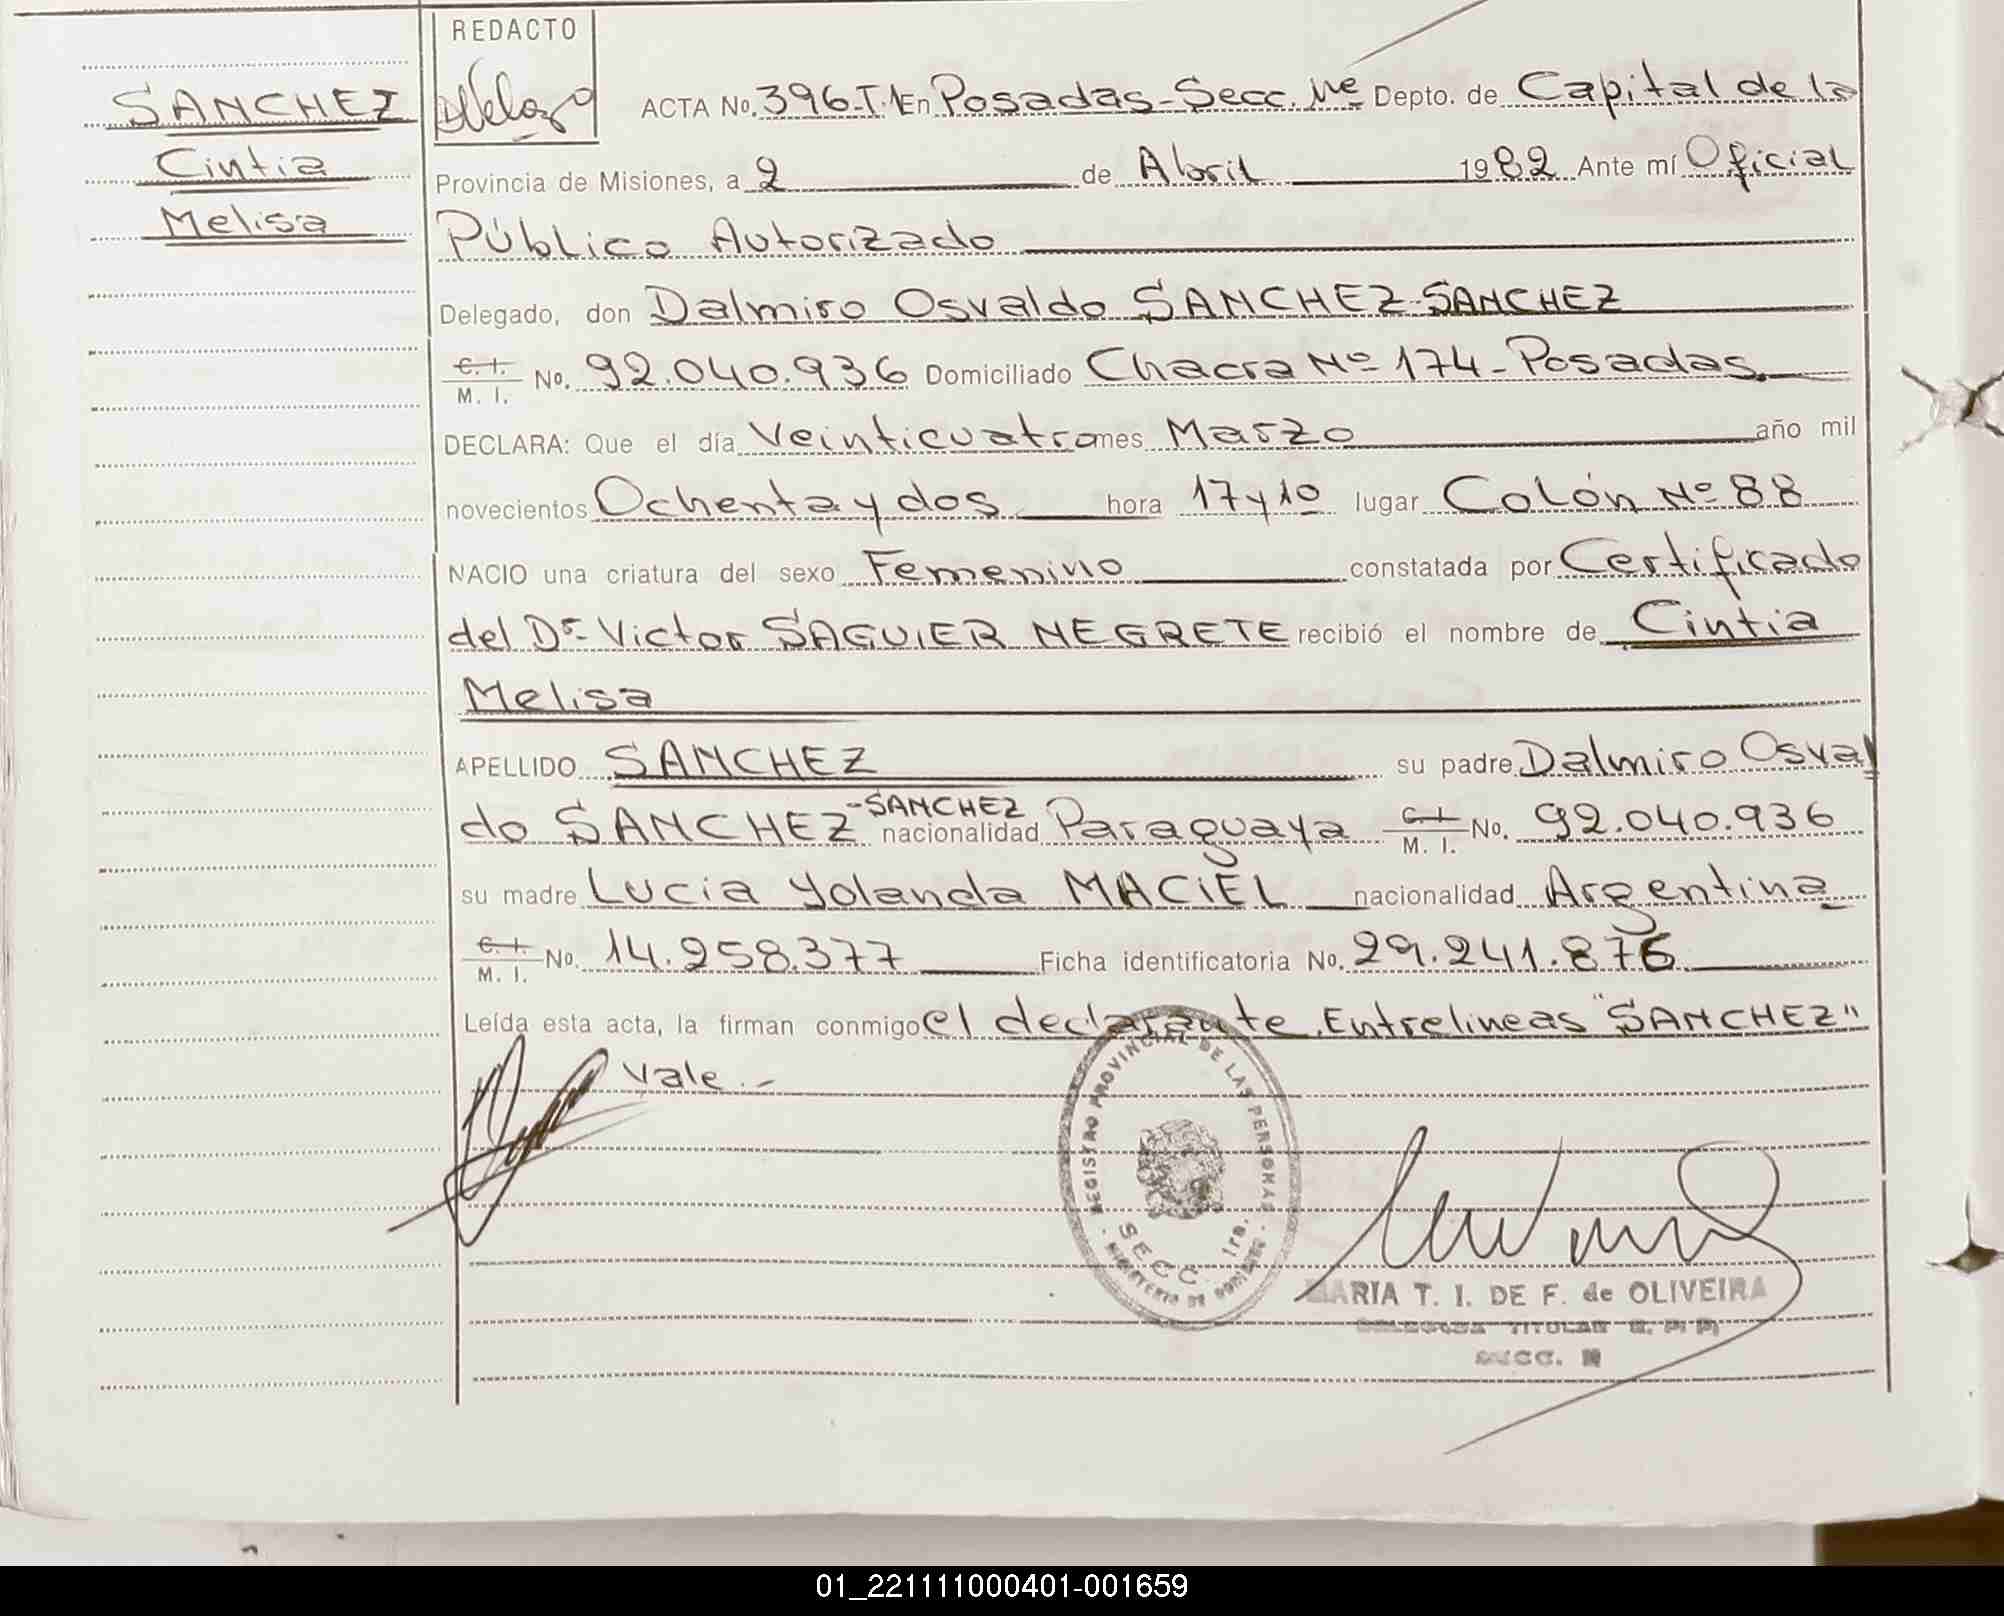 REDACTO
SANCHEZ
Cintia
Melisa
ACTA No. 396-T.1 En Posadas-Secc. 1ra Depto. de Capital de la
Provincia de Misiones, a 2 de Abril 1982 Ante mí Oficial
Público Autorizado
Delegado, don Dalmiro Osvaldo SANCHEZ-SANCHEZ
C. I. M. I. No. 92.040.936 Domiciliado Chacra Nº 174-Posadas.
DECLARA: Que el día Veinticuatro mes Marzo año mil
novecientos Ochenta y dos hora 17 y 10 lugar Colón Nº 88
NACIO una criatura del sexo Femenino constatada por Certificado
del Dr. Victor SAGUIER NEGRETE recibió el nombre de Cintia
Melisa
APELLIDO SANCHEZ su padre Dalmiro Osval
do SANCHEZ-SANCHEZ nacionalidad Paraguaya C. I. M. I. No. 92.040.936
su madre Lucia Yolanda MACIEL nacionalidad Argentina
C. I. M. I. No. 14.258.377 Ficha identificatoria No. 29.241.876
Leída esta acta, la firman conmigo el declarante. Entrelineas "SANCHEZ"
Vale.-
REGISTRO PROVINCIAL DE LAS PERSONAS
SECC. 1ra.
MINISTERIO DE GOBIERNO
MARIA T. I. DE F. de OLIVEIRA
DELEGADA TITULAR R. P. P.
SECC.
01_221111000401-001659